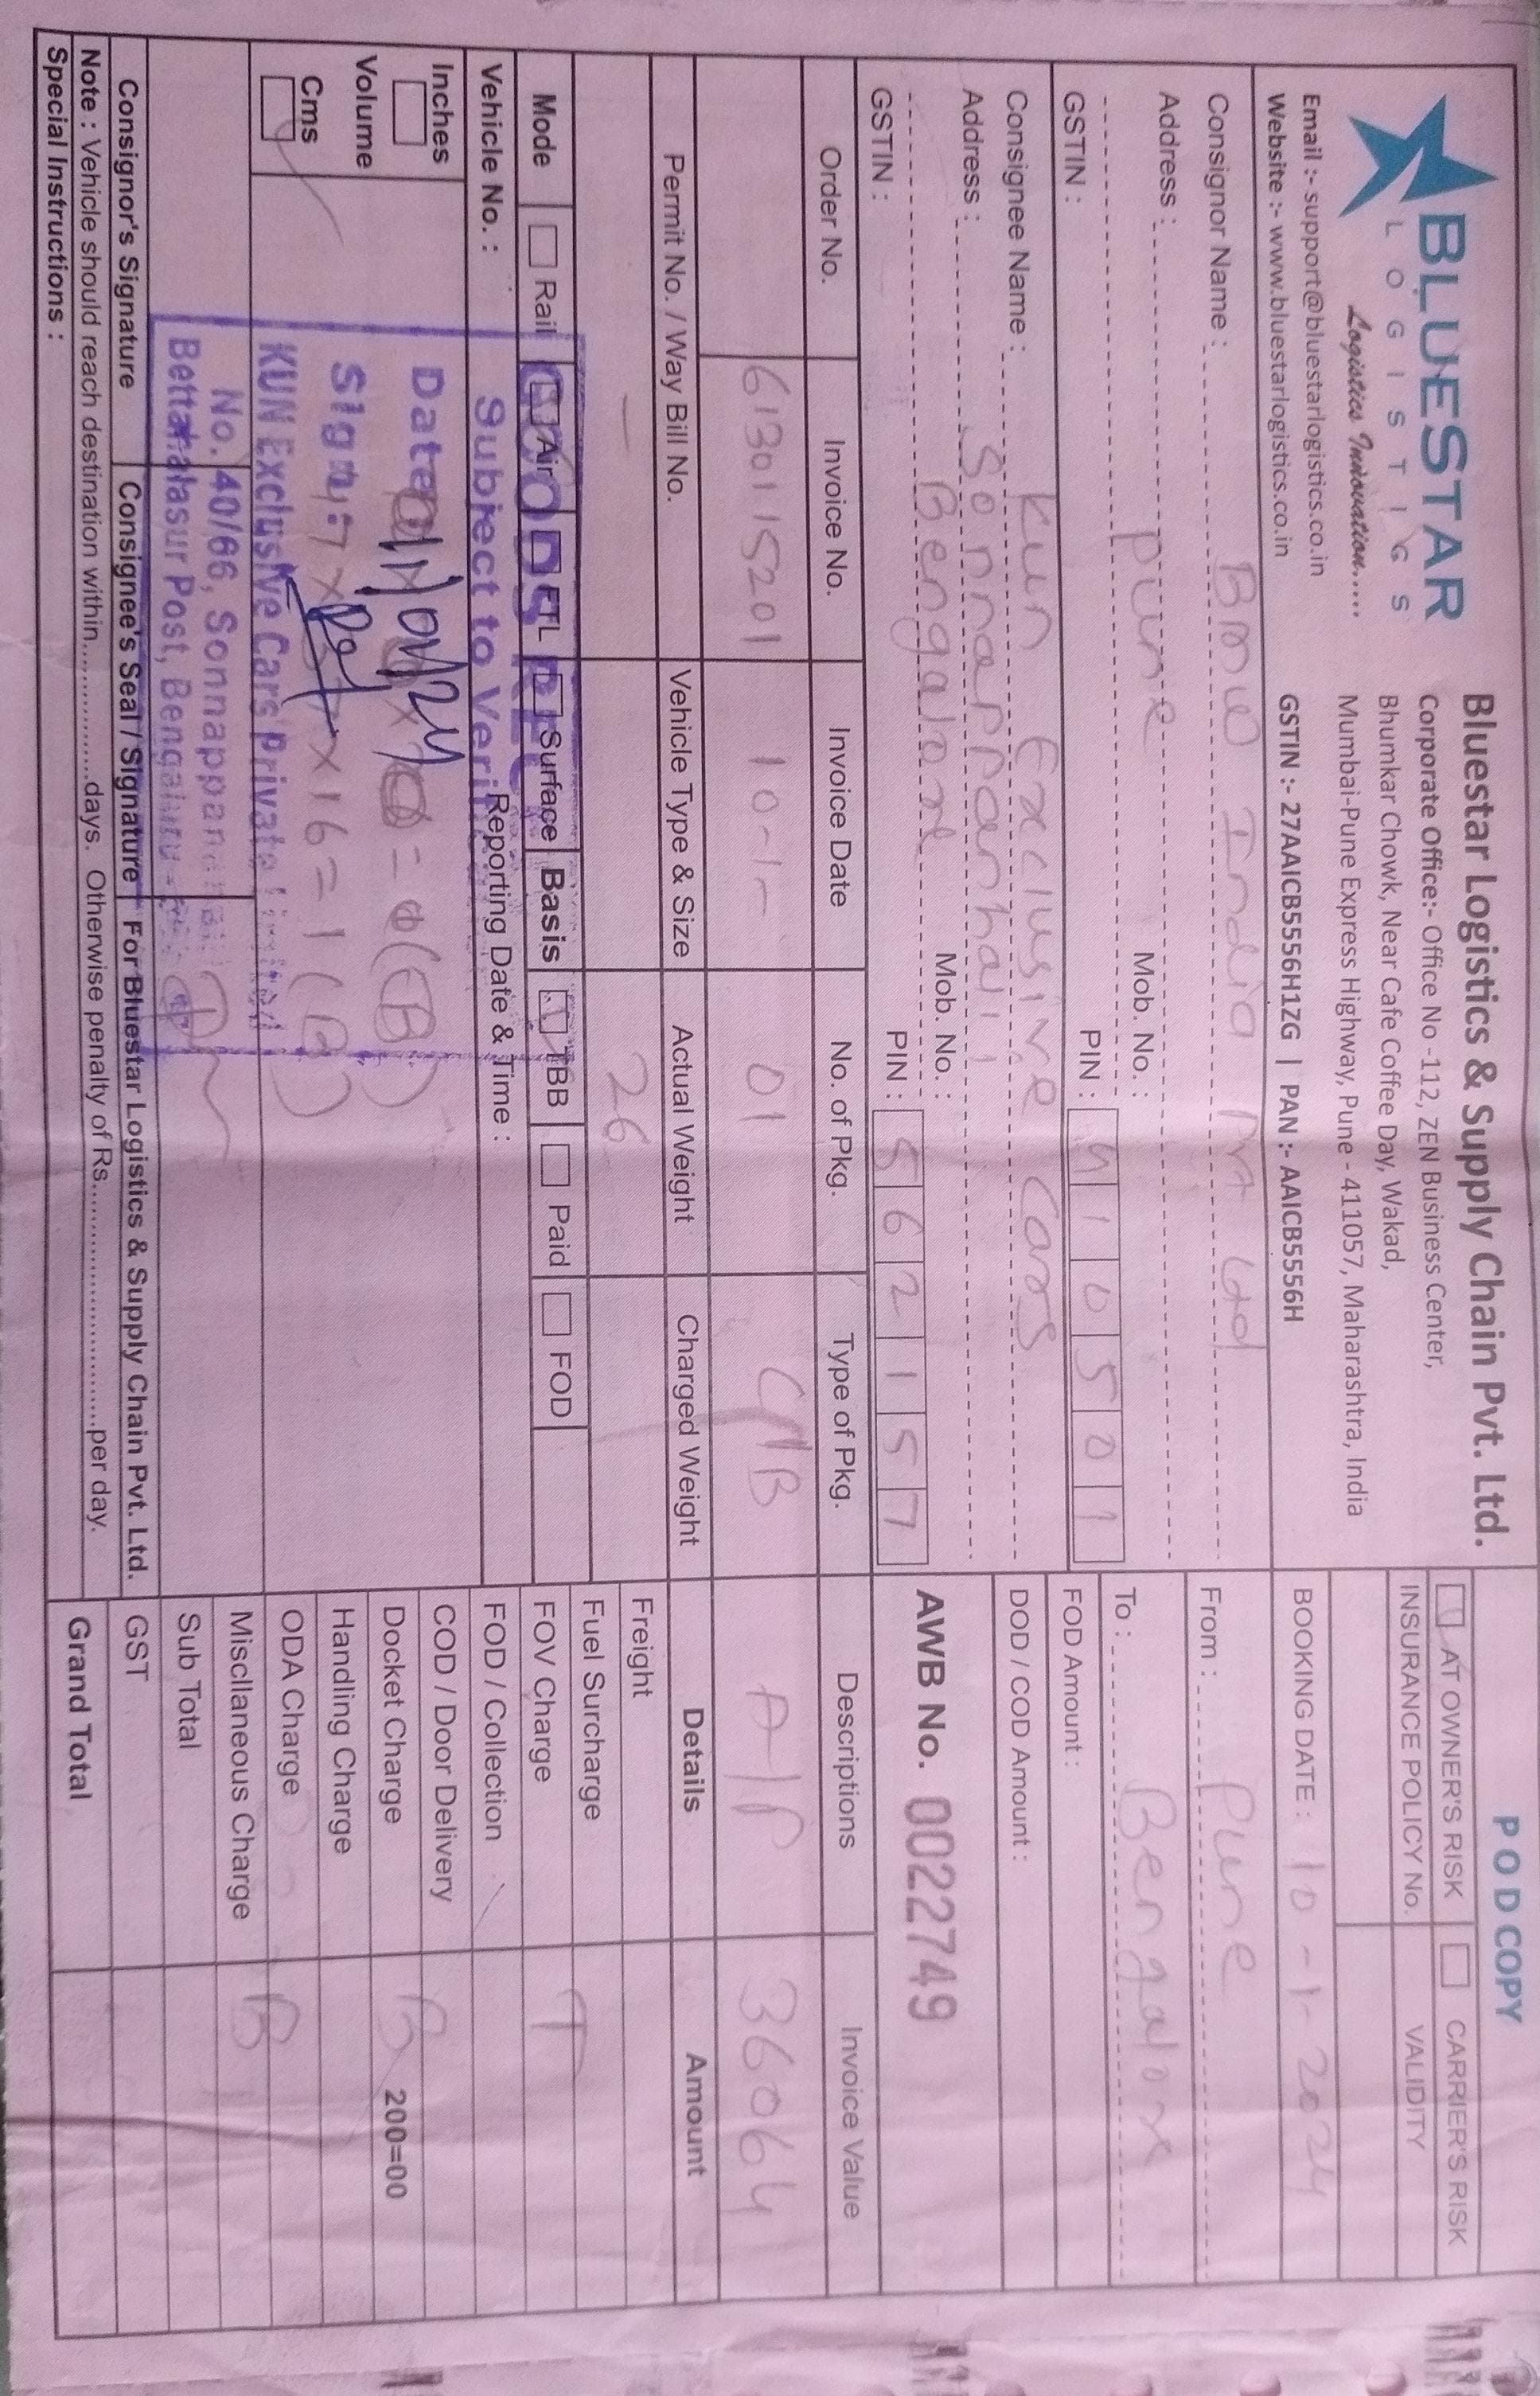 BLUESTAR
LOGISTICS
Logistics Innovation.....
Email :- support@bluestarlogistics.co.in
Website :- www.bluestarlogistics.co.in
Bluestar Logistics & Supply Chain Pvt. Ltd.
Corporate Office:- Office No -112, ZEN Business Center,
Bhumkar Chowk, Near Cafe Coffee Day, Wakad,
Mumbai-Pune Express Highway, Pune - 411057, Maharashtra, India
GSTIN :- 27AAICB5556H1ZG | PAN :- AAICB5556H
POD COPY
AT OWNER'S RISK CARRIER'S RISK
INSURANCE POLICY No. VALIDITY
BOOKING DATE : 10-1-2024
Consignor Name : BMW India Pvt Ltd
Address : Pune
Mob. No. :
PIN : 410501
GSTIN :
From : Pune
To : Bengalore
FOD Amount :
DOD / COD Amount :
AWB No. 0022749
Consignee Name : Kun Exclusive Cars
Address : Sonnappanhalli
Bengalore
Mob. No. :
PIN : 562157
GSTIN :
Order No. Invoice No. Invoice Date No. of Pkg. Type of Pkg. Descriptions Invoice Value
6130115201 10-1- 01 C/B A/P 36064
Permit No. / Way Bill No. Vehicle Type & Size Actual Weight Charged Weight Details Amount
— 26
Mode Rail Air FTL Surface Basis TBB Paid FOD
Vehicle No. : Reporting Date & Time :
Inches
Volume
Cms
= (CB)
47 x x16=1(B)
GOODS REC
Subject to Verification
Date 11/01/24
Sign:
KUN Exclusive Cars Private Limited
No. 40/66, Sonnappan
Bettahalasur Post, Bengaluru -
Freight
Fuel Surcharge
FOV Charge T
FOD / Collection
COD / Door Delivery
Docket Charge B 200=00
Handling Charge
ODA Charge
Miscllaneous Charge B
Sub Total
GST
Grand Total
Consignor's Signature Consignee's Seal / Signature For Bluestar Logistics & Supply Chain Pvt. Ltd.
Note : Vehicle should reach destination within.................days. Otherwise penalty of Rs..............................per day.
Special Instructions :